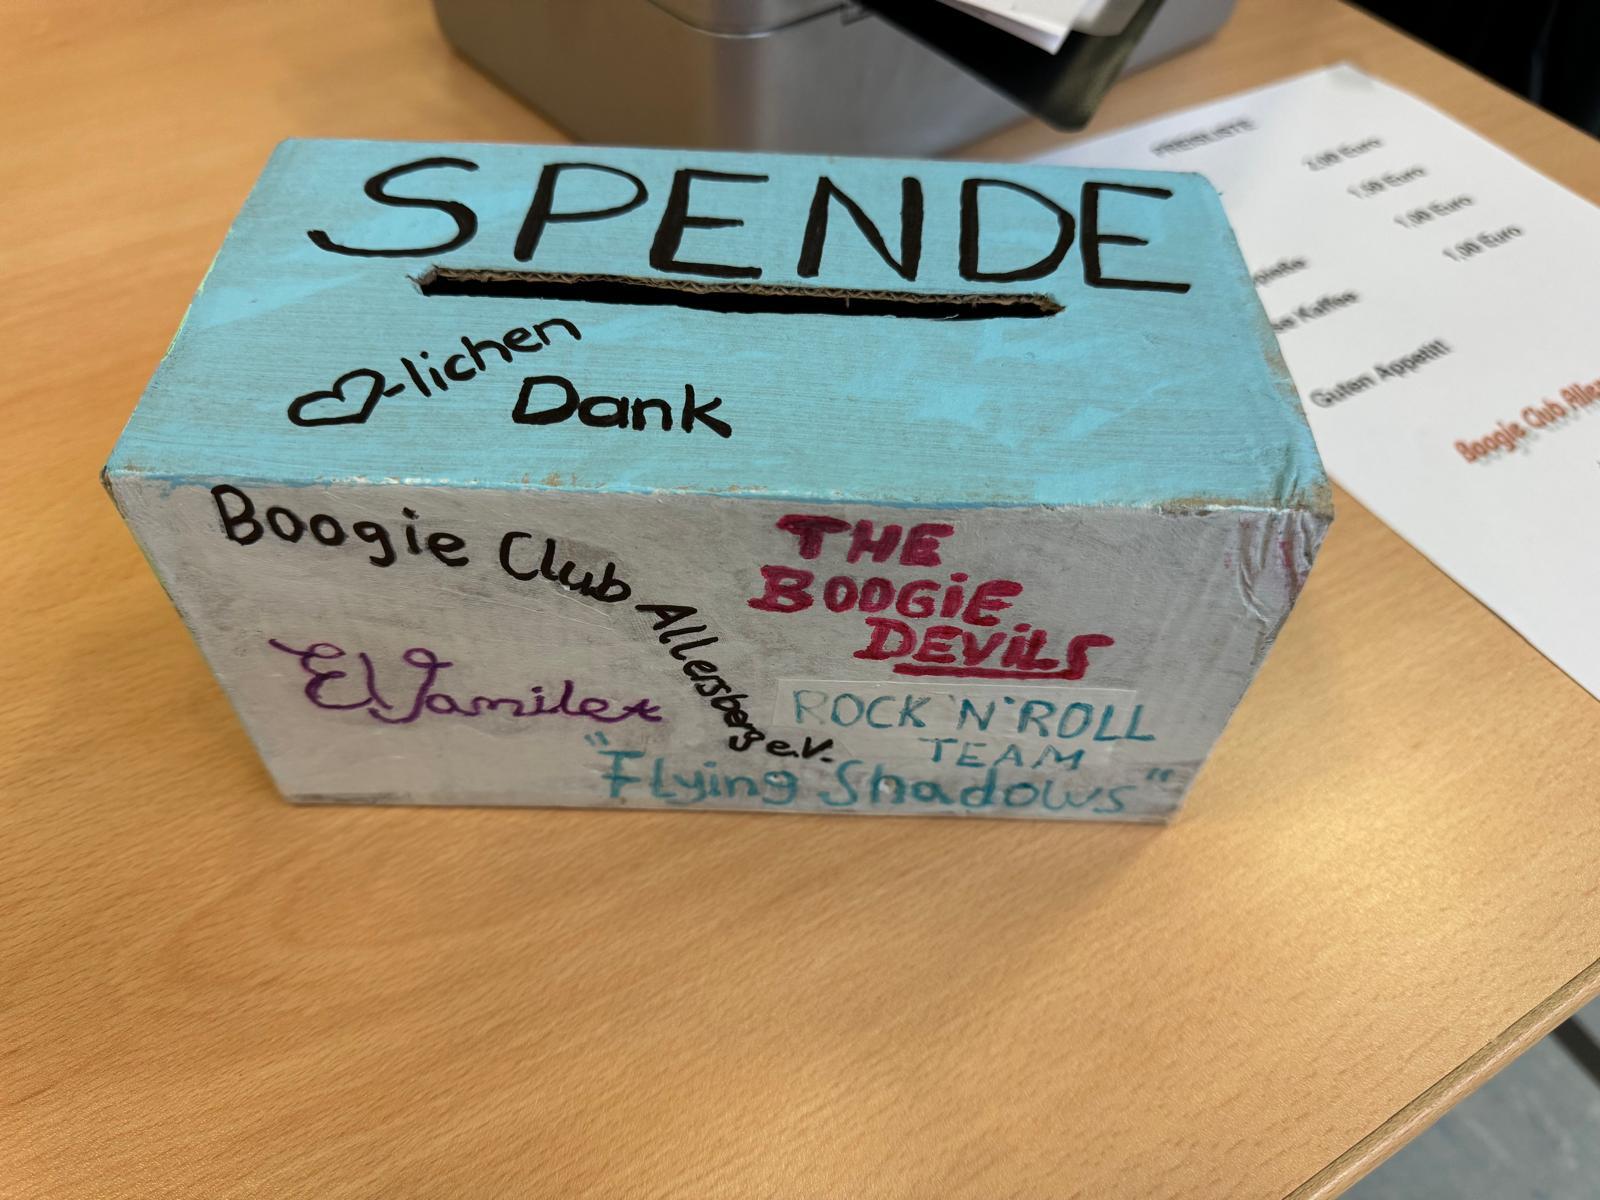 SPENDE
♡-lichen
Dank
Boogie Club Allersberg e.V.
THE
BOOGIE
DEVILS
El Yamilet
ROCK'N'ROLL
TEAM
"Flying Shadows"
PREISLISTE
2,00 Euro
1,50 Euro
1,00 Euro
1,00 Euro
Kaffee
Guten Appetit!
Boogie Club